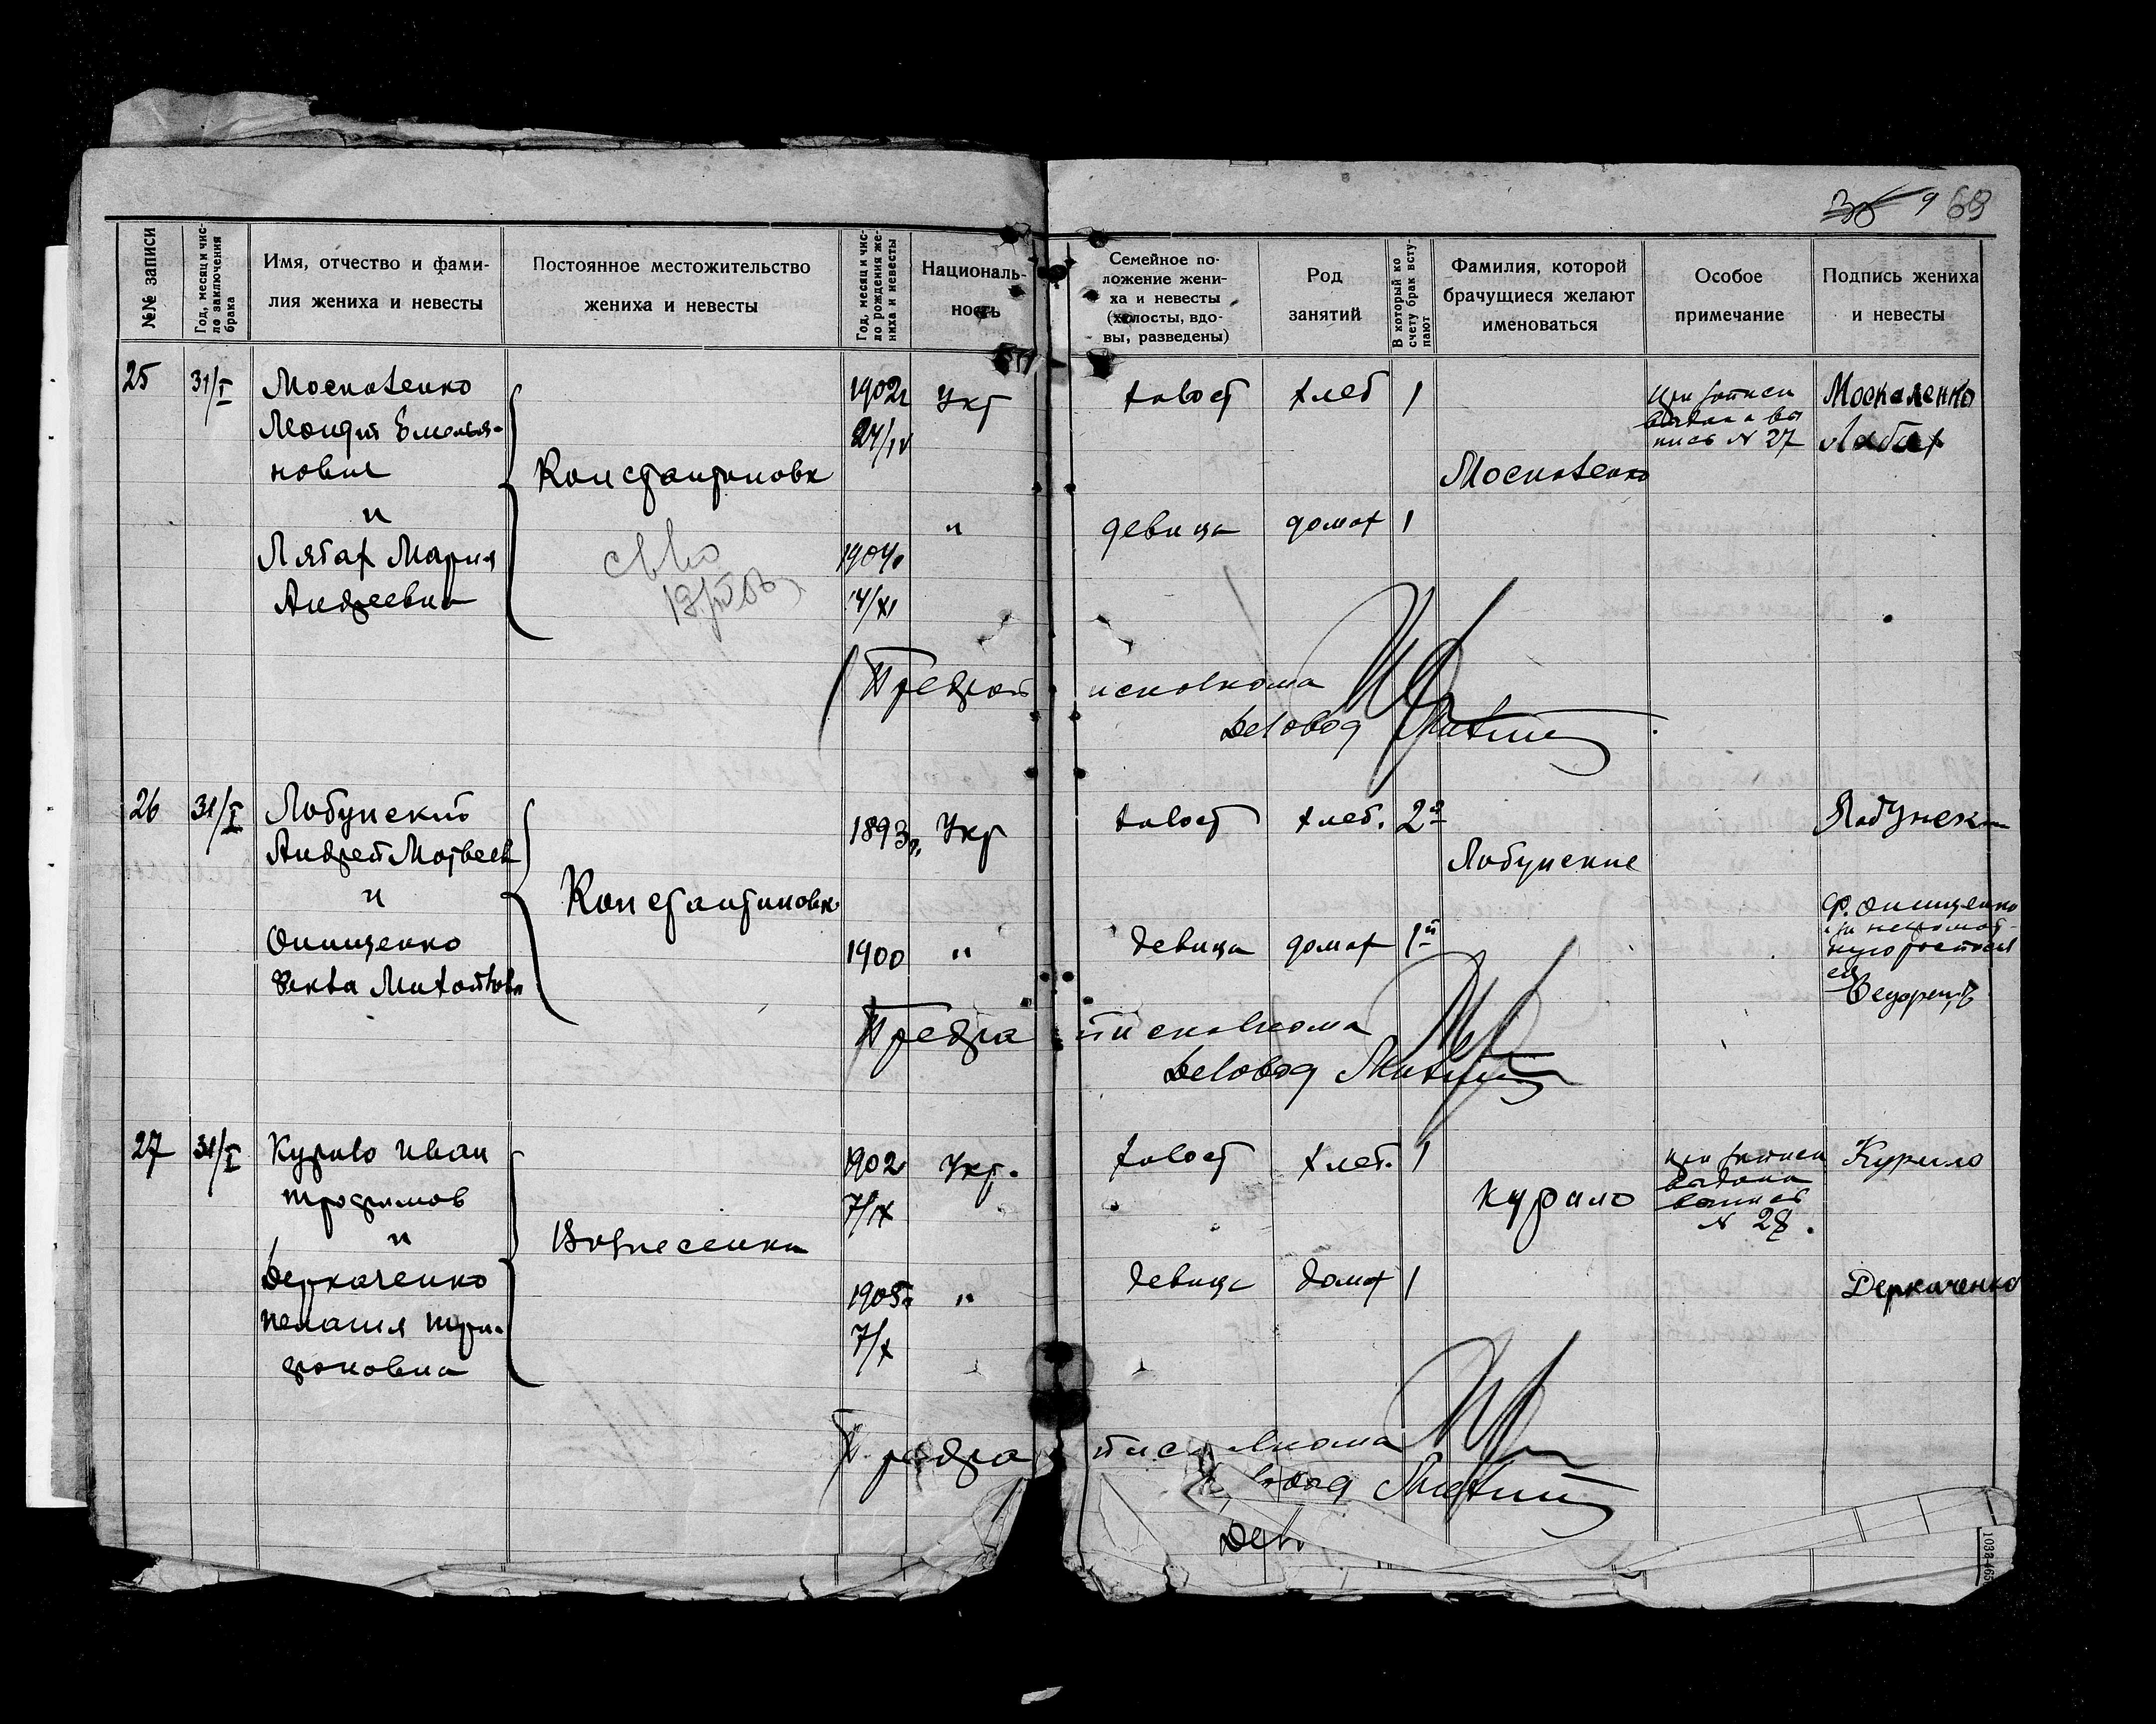 9 69
№№ записи
Год, месяц и чис-
ло заключения
брака
Имя, отчество и фами-
лия жениха и невесты
Постоянное местожительство
жениха и невесты
Год, месяц и чис-
ло рождения же-
ниха и невесты
Националь-
ность
Семейное по-
ложение жени-
ха и невесты
(холосты, вдо-
вы, разведены)
Род
занятий
В который ко
счету брак всту-
пают
Фамилия, которой
брачущиеся желают
именоваться
Особое
примечание
Подпись жениха
и невесты
25
31/I
Москаленко
Леонтий Емелья-
нович
и
Лябах Мария
Андреевна
Константиновк
1902г
24/IV
1904г
14/XI
Укр
"
холост
девица
хлеб
домох
1
1
Москаленко
при записи
выдана вы
пись N 27
Москаленко
Лябах
Предгол исполкома
Деловод
26
31/I
Лобунский
Андрей Матвеев
и
Онищенко
Фекла Михайловн
Константиновк
1893г.
1900
Укр
"
холост
девица
хлеб.
домох
2й
1й
Лобунские
Лобунски
Ф. Онищенко
Предгол исполкома
Деловод
27
31/I
Курило Иван
Трофимов
и
Деркаченко
Пелагия Три-
фоновна
Вознесенка
1902г
7/IX
1905г
7/X
Укр.
"
холост
девица
хлеб.
домох
1
1
Курило
при записи
выдана
выпись
N 28.
Курило
Деркаченко